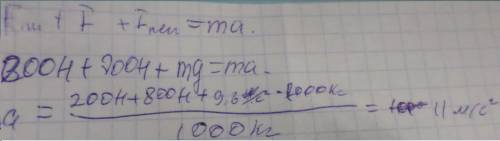 Fтт + F + Fтеп = ma.
800H + 200H + mg = ma.
a = 200H + 800H + 9,8 · 1000кг / 1000кг = 11 м/с²